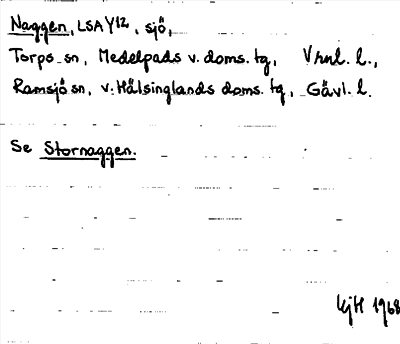 Naggen, LSA Y12, sjö,
Torps sn, Medelpads v. doms. tg, Vrnl. l.,
Ramsjö sn, v. Hälsinglands doms. tg, Gävl. l.
Se Stornaggen.
1968